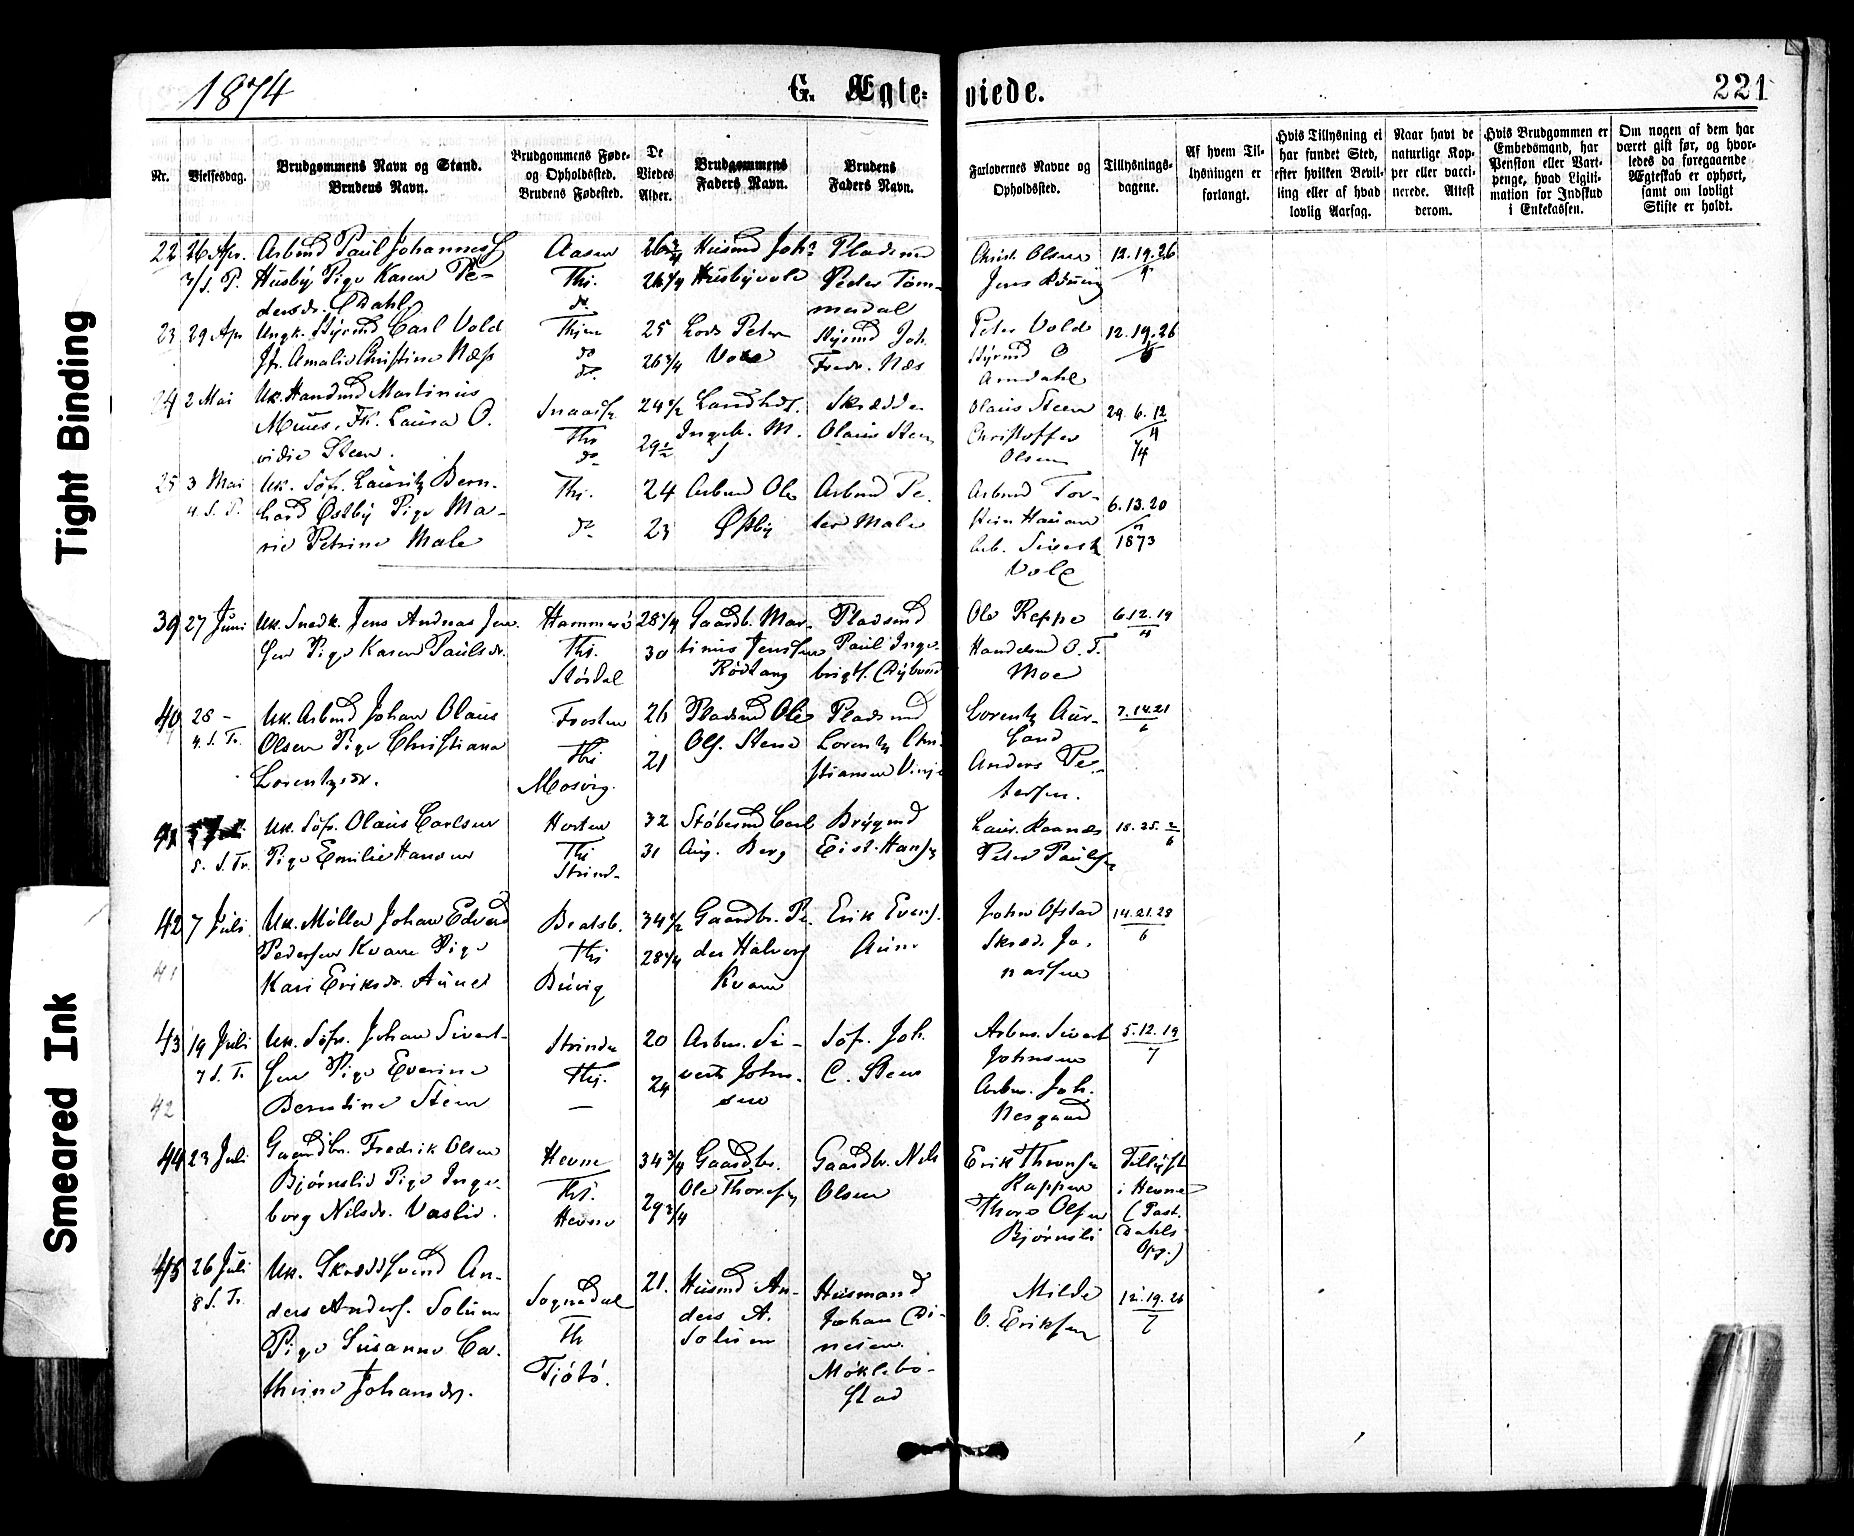 1874
G. Ægte-
viede.
221
Nr.
Vielsesdag.
Brudgommens Navn og Stand.
Brudens Navn.
Brudgommens Føde-
og Opholdssted.
Brudens Fødested.
De
Viedes
Alder.
Brudgommens
Faders Navn.
Brudens
Faders Navn.
Forlovernes Navne og
Opholdssted.
Tillysnings-
dagene.
Af hvem Til-
lysningen er
forlangt.
Hvis Tillysning ei
har fundet Sted,
efter hvilken Bevil-
ling eller af hvad
lovlig Aarsag.
Naar havt de
naturlige Kop-
per eller vacci-
nerede. Attest
derom.
Hvis Brudgommen er
Embedsmand, har
Pension eller Vart-
penge, hvad Ligiti-
mation for Indskud
i Enkekassen.
Om nogen af dem har
været gift før, og hvor-
ledes da foregaaende
Ægteskab er ophørt,
samt om lovligt
Skifte er holdt.
22 26 Apr. Arbmd Paul Johannes
Husby Pige Karen Pe-
dersdr. Dahl
Aasen
Thj.
do
Husmd Joh
Husbyvole
Pladsm
Peder Tøm-
merdal
Christ. Olsen
Jens
12.19.26
23 29 Apr Ungk. Styrmd Carl Vold
Jfr. Amalie Christine Næss
Thjem
do
do
25
26 3/4
Lods Peter
Vold
Styrmd Joh.
Fredr. Næs
Peter Vold
Styrmd O
Amdahl
12.19.26
24 2 Mai Uk. Handmd Martinus
Muus. Fk. Laura O.
vidie Steen.
Snaasen
Thj
do
24 1/2
29 1/2
Landhdl.
Ingebr. M.
Skrædder
Olaus Steen
Olaus Steen
Christoffer
Olsen
29. 6. 12
4
74
25 3 Mai
4. S. P.
Uk. Søfr. Lauritz Bern-
hard Østby Pige Ma-
rie Petrine Male
Thj.
do
24
23
Arbmd Ole
Østby
Arbmd Pe-
ter Male
Arbmd Tor-
stein Hauan
Arb. Sivert
Vold
6.13.20
1873
39 27 Juni Uk. Snedk. Jens Andreas Jen-
sen Pige Karen Paulsdr.
Hammerø
Thj.
Størdal
28 1/4
30
Gaardb. Mar-
tinus Jensen
Rødtang
Pladsmd
Paul Inge-
brigts. Dybvad
Ole Reppe
Handelsmd O. T.
Moe
6.12.19
4
40 28 -
4. S. Tr.
Uk. Arbmd Johan Olaus
Olsen Pige Christiana
Lorentzdr.
Frosten
Thj
Mosvig.
26
21
Pladsmd Ole
Ols. Steen
Pladsmd
Lorentz Chri-
stiansen Vinje
Lorentz Aur-
land
Anders Pe-
tersen.
7.14.21
6
41
5. S. Tr.
Uk. Søfr. Olaus Carlsen
Pige Emilie Hansen
Horten
Thj
Strind-
32
31
Støbermd Carl
Aug. Berg
Brygmd
Eist. Hansen
Laur. Raanes
Peter Paulsen
18. 25. 2
6
42 7 Juli Uk. Møller Johan Edvard
Pedersen Kvam Pige
Kari Eriksdr. Aunet
41
Beatsb.
Thj
Buvig
34 1/2
28 1/4
Gaardbr. Pe-
der Halvors
Kvam
Erik Evens.
Aune
John Ofstad
Skræd. Jo-
nassen
14.21.28
6
43 19 Juli
7 S. Tr.
Uk. Søfr. Johan Sivert-
sen Pige Everine
Berntine Steen
42
Strinden
Thj.
—
20
24
Arbm. Si-
vert John-
sen
Søf. Joh.
C. Steen
Arbm. Sivert
Johnsen
Arbm. Joh.
Nesgaard
5.12.19
7
44 23 Juli Gaardbr. Fredrik Olsen
Bjørnslid Pige Inge-
borg Nilsdr. Vaslid.
Hevne
Thj.
Hevne
34 3/4
29 3/4
Gaardbr.
Ole Thoresen
Gaardbr. Nils
Olsen
Erik
Thore Olsen
Bjørnsli
Tillyst
i Hevne
(Past.
Dahls
Opg.)
45 26 Juli
8 S. Tr.
Uk. Skrædsvend An-
ders Anders. Solum
Pige Susanne Ca-
thrine Johansdr.
Sognedal
Th
Tjøtø.
21.
Husmd An-
ders A.
Solum
Husmand
Johan Di-
nesen
Møklebo-
stad
Milde
O. Eriksen
12.19.26
7
Tight Binding
Smeared Ink